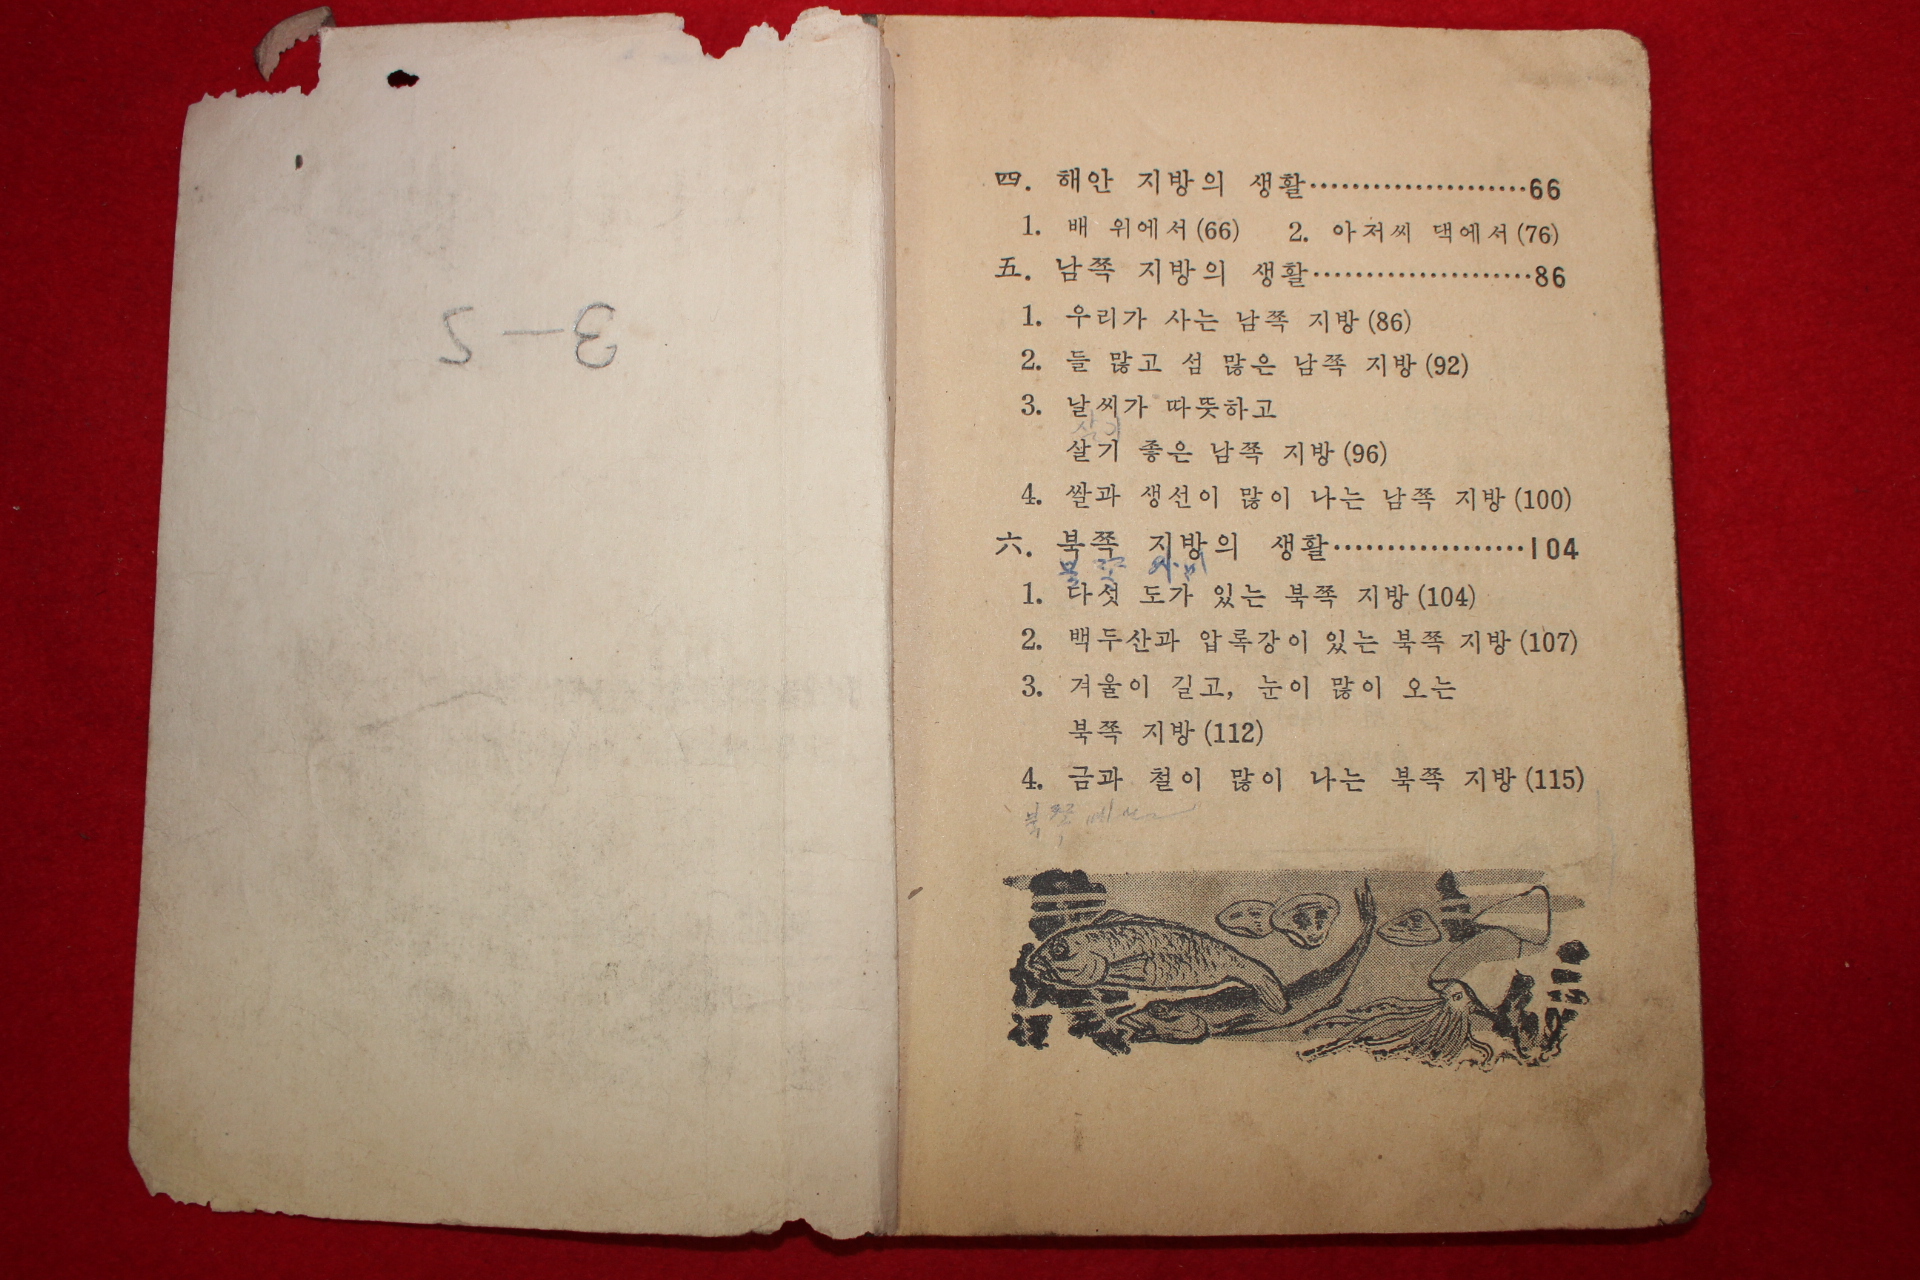 3-2
四. 해안 지방의 생활·····················66
1. 배 위에서(66) 2. 아저씨 댁에서(76)
五. 남쪽 지방의 생활·····················86
1. 우리가 사는 남쪽 지방(86)
2. 들 많고 섬 많은 남쪽 지방(92)
3. 날씨가 따뜻하고
살기
살기 좋은 남쪽 지방(96)
4. 쌀과 생선이 많이 나는 남쪽 지방(100)
六. 북쪽 지방의 생활··················104
1. 다섯 도가 있는 북쪽 지방(104)
2. 백두산과 압록강이 있는 북쪽 지방(107)
3. 겨울이 길고, 눈이 많이 오는
북쪽 지방(112)
4. 금과 철이 많이 나는 북쪽 지방(115)
북쪽